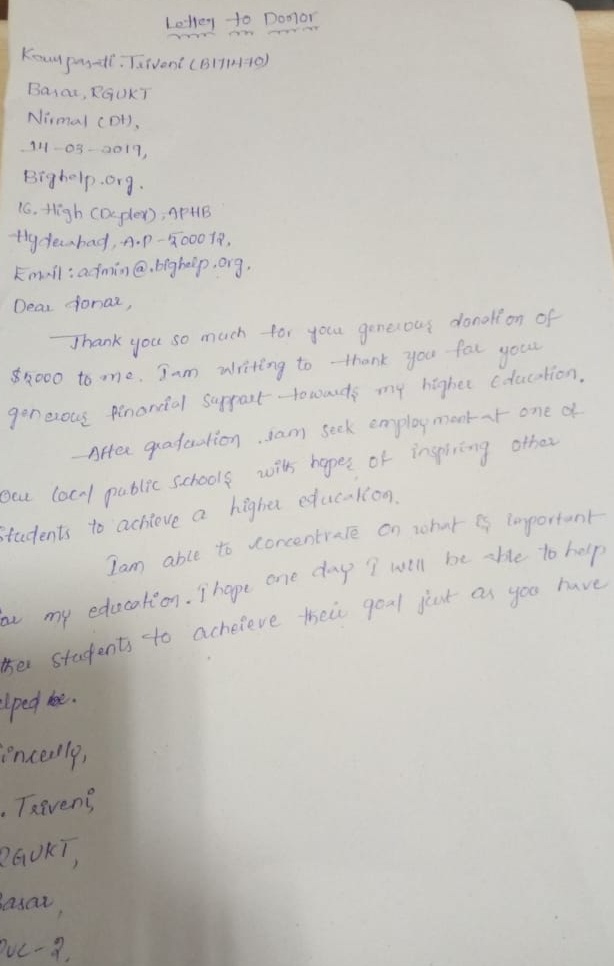 Letter to Donor
Triveni (B171470)
Basar, RGUKT
Nirmal (Dt),
14-03-2019,
Bighelp.org.
16. High (Duplex), APHB
Hyderabad, A.P - 500072.
Email: admin@.bighelp.org.
Dear donar,
Thank you so much for your generous donation of
$5000 to me. I am writing to thank you for your
generous financial support towards my higher education.
After graduation, iam seek employment at one of
our local public schools with hopes of inspiring other
students to achieve a higher education.
I am able to concentrate on what is important
my education. I hope one day I will be able to help
ther students to acheieve their goal just as you have
elped
incerlly,
. Triveni,
RGUKT,
asar,
PUC-2.